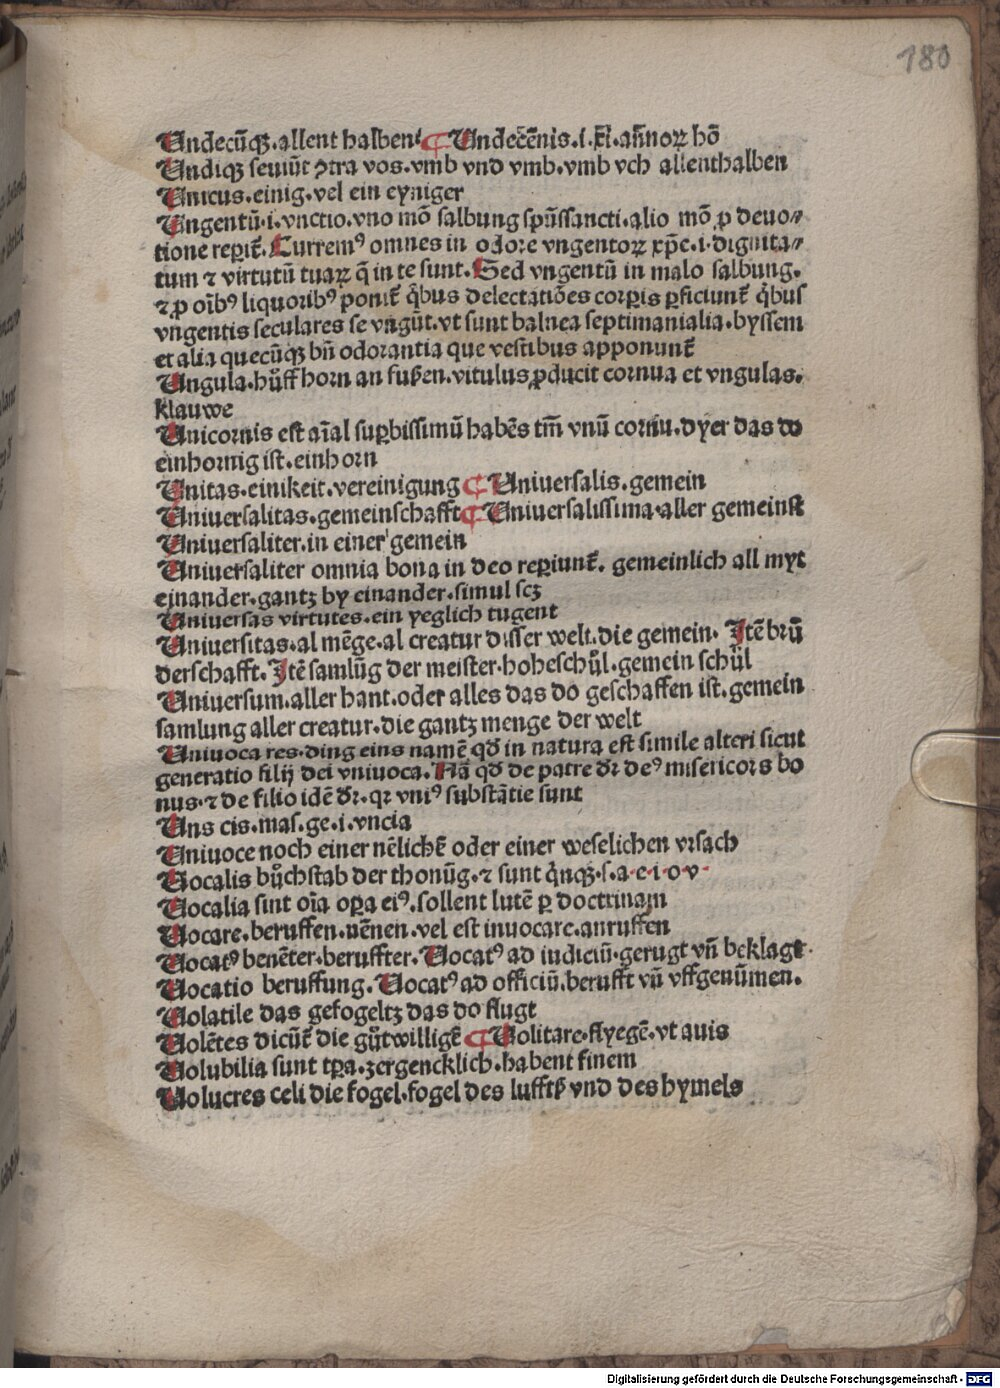 180
Undecūqꝫ.allent halben ¶ Undecēnis.i.xi.annoꝝ hō
Undiqꝫ seuiūt ꝯtra vos.vmb vnd vmb.vmb vch allenthalben
Unicus.einig.vel ein eyniger
Ungentū.i.vnctio.vno mō salbung spūssancti.alio mō ꝓ deuo⸗
tione reꝑit᷑.Curremꝰ omnes in odore vngentoꝝ xp̄e.i.dignita⸗
tum ⁊ virtutū tuaꝝ q̄ in te sunt.Sed vngentū in malo salbung.
⁊ ꝓ oībꝰ liquoribꝰ ponit᷑ q̇bus delectatiōes corꝑis ꝑficiunt᷑ q̇bus
vngentis seculares se vngūt.vt sunt balnea septimanialia.byssem
et alia quecūqꝫ bn̄ odorantia que vestibus apponunt᷑
Ungula.hůff horn an fußen.vitulus ꝓducit cornua et vngulas.
klauwe
Unicornis est aīal suꝑbissimū habēs tm̄ vnū cornu.dyer das do
einhornig ist.einhorn
Unitas.einikeit.vereinigung ¶ Uniuersalis.gemein
Uniuersalitas.gemeinschafft ¶ Uniuersalissima.aller gemeinst
Uniuersaliter.in einer gemein
Uniuersaliter omnia bona in deo reꝑiunt᷑. gemeinlich all myt
einander.gantz by einander.simul scꝫ
Uniuersas virtutes.ein yeglich tugent
Uniuersitas.al mēge.al creatur disser welt.die gemein. Itē brů
derschafft.Itē samlūg der meister.hoheschůl.gemein schůl
Uniuersum.aller hant.oder alles das do geschaffen ist.gemein
samlung aller creatur.die gantz menge der welt
Uniuoca res.ding eins namē qđ in natura est simile alteri sicut
generatio filij dei vniuoca.Nā qđ de patre dr̄ deꝰ misericors bo
nus.⁊ de filio idē dr̄.qꝛ vniꝰ substātie sunt
Uns cis.mas.ge.i.vncia
Uniuoce noch einer nēlichē oder einer weselichen vrsach
Uocalis bůchstab der thonūg.⁊ sunt q̇nqꝫ.s.a.e.i.o.v.
Uocalia sint oīa oꝑa eiꝰ.sollent lutē ꝑ doctrinam
Uocare.beruffen.nēnen.vel est inuocare.anruffen
Uocatꝰ benēter.beruffter.Uocatꝰ ad iudiciū.gerugt vn̄ beklagt.
Uocatio beruffung.Uocatꝰ ad officiū.berufft vn̄ vffgenūmen.
Uolatile das gefogeltz das do flugt
Uolētes dicūt᷑ die gůtwilligē ¶ Uolitare.flyegē.vt auis
Uolubilia sunt tꝑa.zergencklich.habent finem
Uolucres celi die fogel.fogel des luffts vnd des hymels
Digitalisierung gefördert durch die Deutsche Forschungsgemeinschaft - DFG